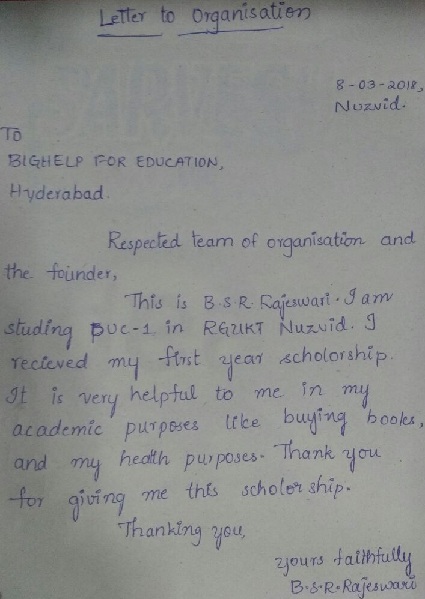 Letter to Organisation
8-03-2018,
Nuzvid.
To
BIGHELP FOR EDUCATION,
Hyderabad.
Respected team of organisation and
the founder,
This is B.S.R. Rajeswari. I am
studing PUC-1 in RGUKT Nuzvid. I
recieved my first year scholorship.
It is very helpful to me in my
academic purposes like buying books,
and my health purposes. Thank you
for giving me this scholorship.
Thanking you,
yours faithfully
B.S.R. Rajeswari